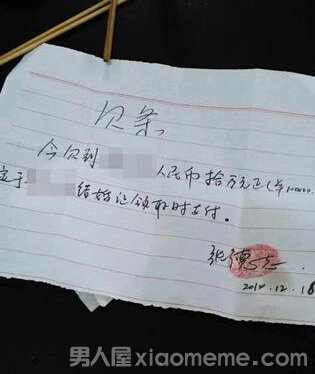 欠条
今欠到 人民币拾万元正(￥100000.
定于 结婚证领取时支付。
张德
2014.12.18
男人屋xiaomeme.com